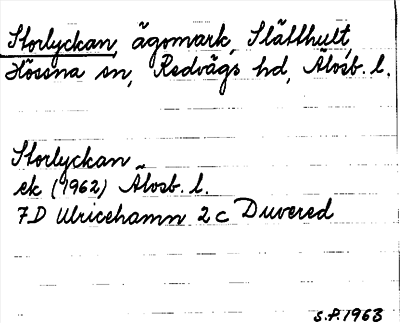 Storlyckan, ägomark, Slätthult,
Hössna sn, Redvägs hd, Älvsb. l.
Storlyckan
ek (1962) Älvsb. l.
7D Ulricehamn 2c Duvered
S.P. 1963